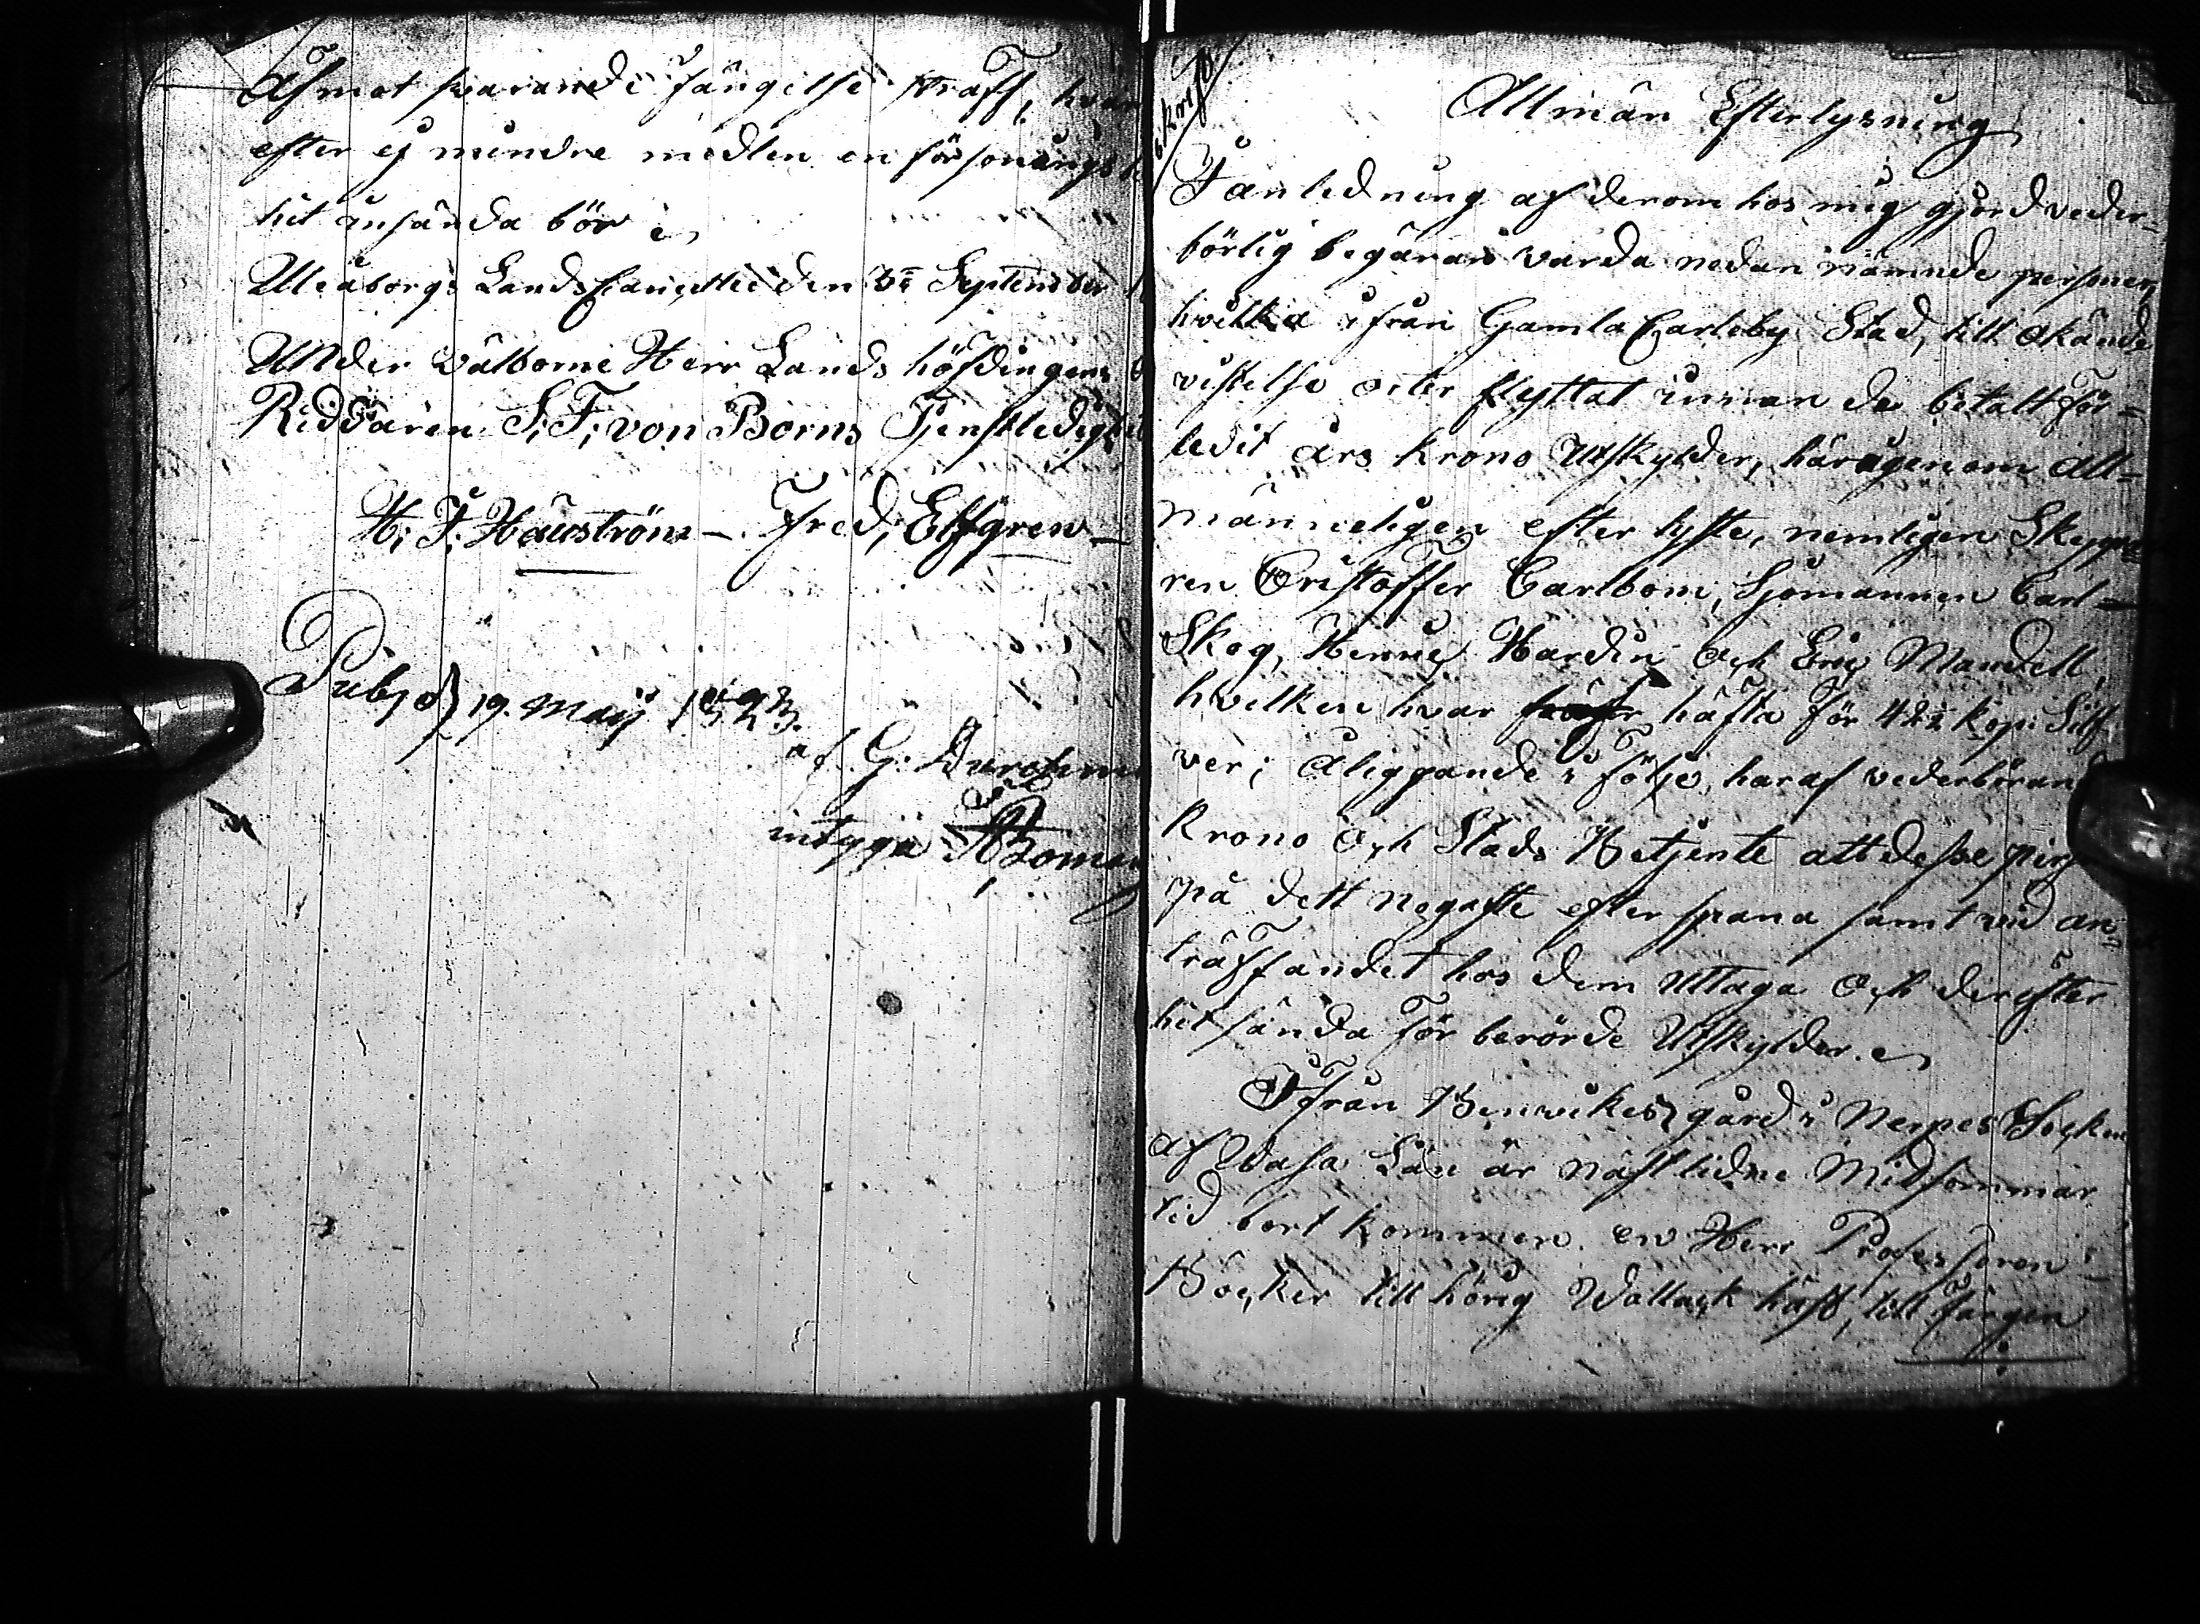 Åfmot svarande fängelse straff, hvar
efter ej mindre medlen en försonings
hit insända bör
Uleåborgs Lands Cancellie den 3e September
Under Välborne Herr Lands höfdingens
Riddaren S: F: von Borns Tjenstledighet
H: J: Häuström – Fred; Elfgren –
Publ 19. Maij 1823.
af G:
intyga
Allmän Efterlysning
I anledning af derom hos mig gjord veder-
börlig begäran varda nedan nämnde personer,
hvilka ifrån Gamla Carleby Stad, till okände
vistelse orter flyttat innan de betalt för-
ledit års Krono Utskylder, härigenom all-
männeligen efter lyste, nemligen Skeppa
ren Cristoffer Carlbom, Sjömannen Carl
Skog, Hardin och Eric Mandell,
hvilken hvar häfta för 4 kop: Silf
ver; Åliggande i följe, haraf vederböran
Krono och Stads Betjente att desse perso
på dett nogaste efter spana samt vid an-
träffandet hos dem Uttaga och derefter
hit sända för berörde Utskylder.
Ifrån Benvikes gård i Nerpes Socken
af Wasa Län är nästlidne Midsommar
tid bort kommen en Herr Professoren
Böcker till hörig Wallack häst, till färgen